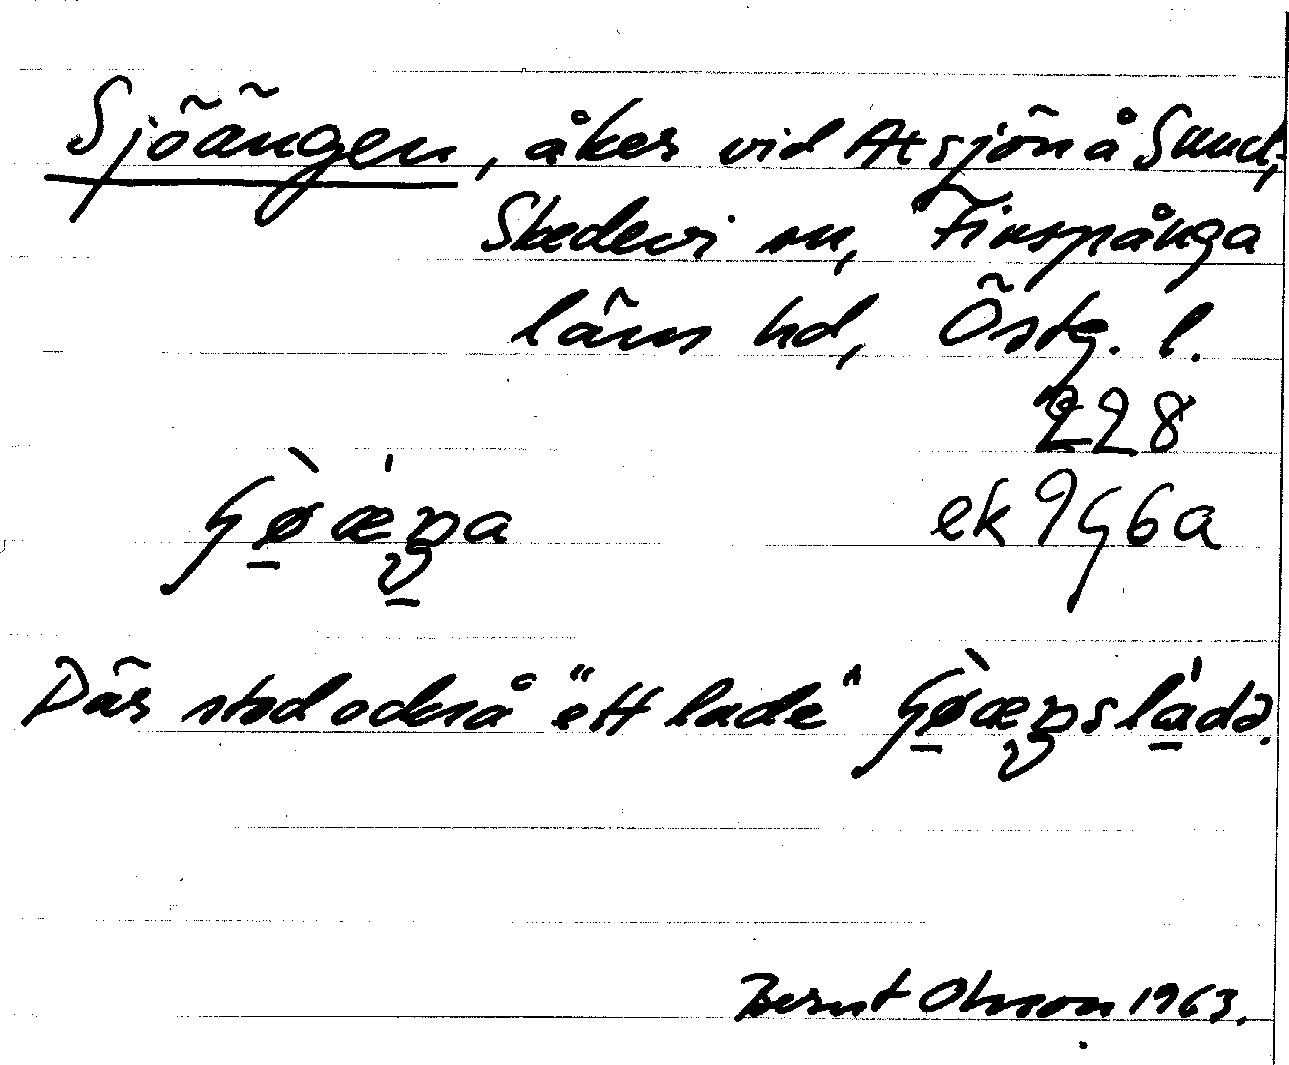 Sjöängen, åker vid Atsjön å Sund,
Skedevi sn, Finspånga
läns hd, Östg. l.
228
ek 9G6a
Där stod också "ett lade"
Bernt Olsson 1963.